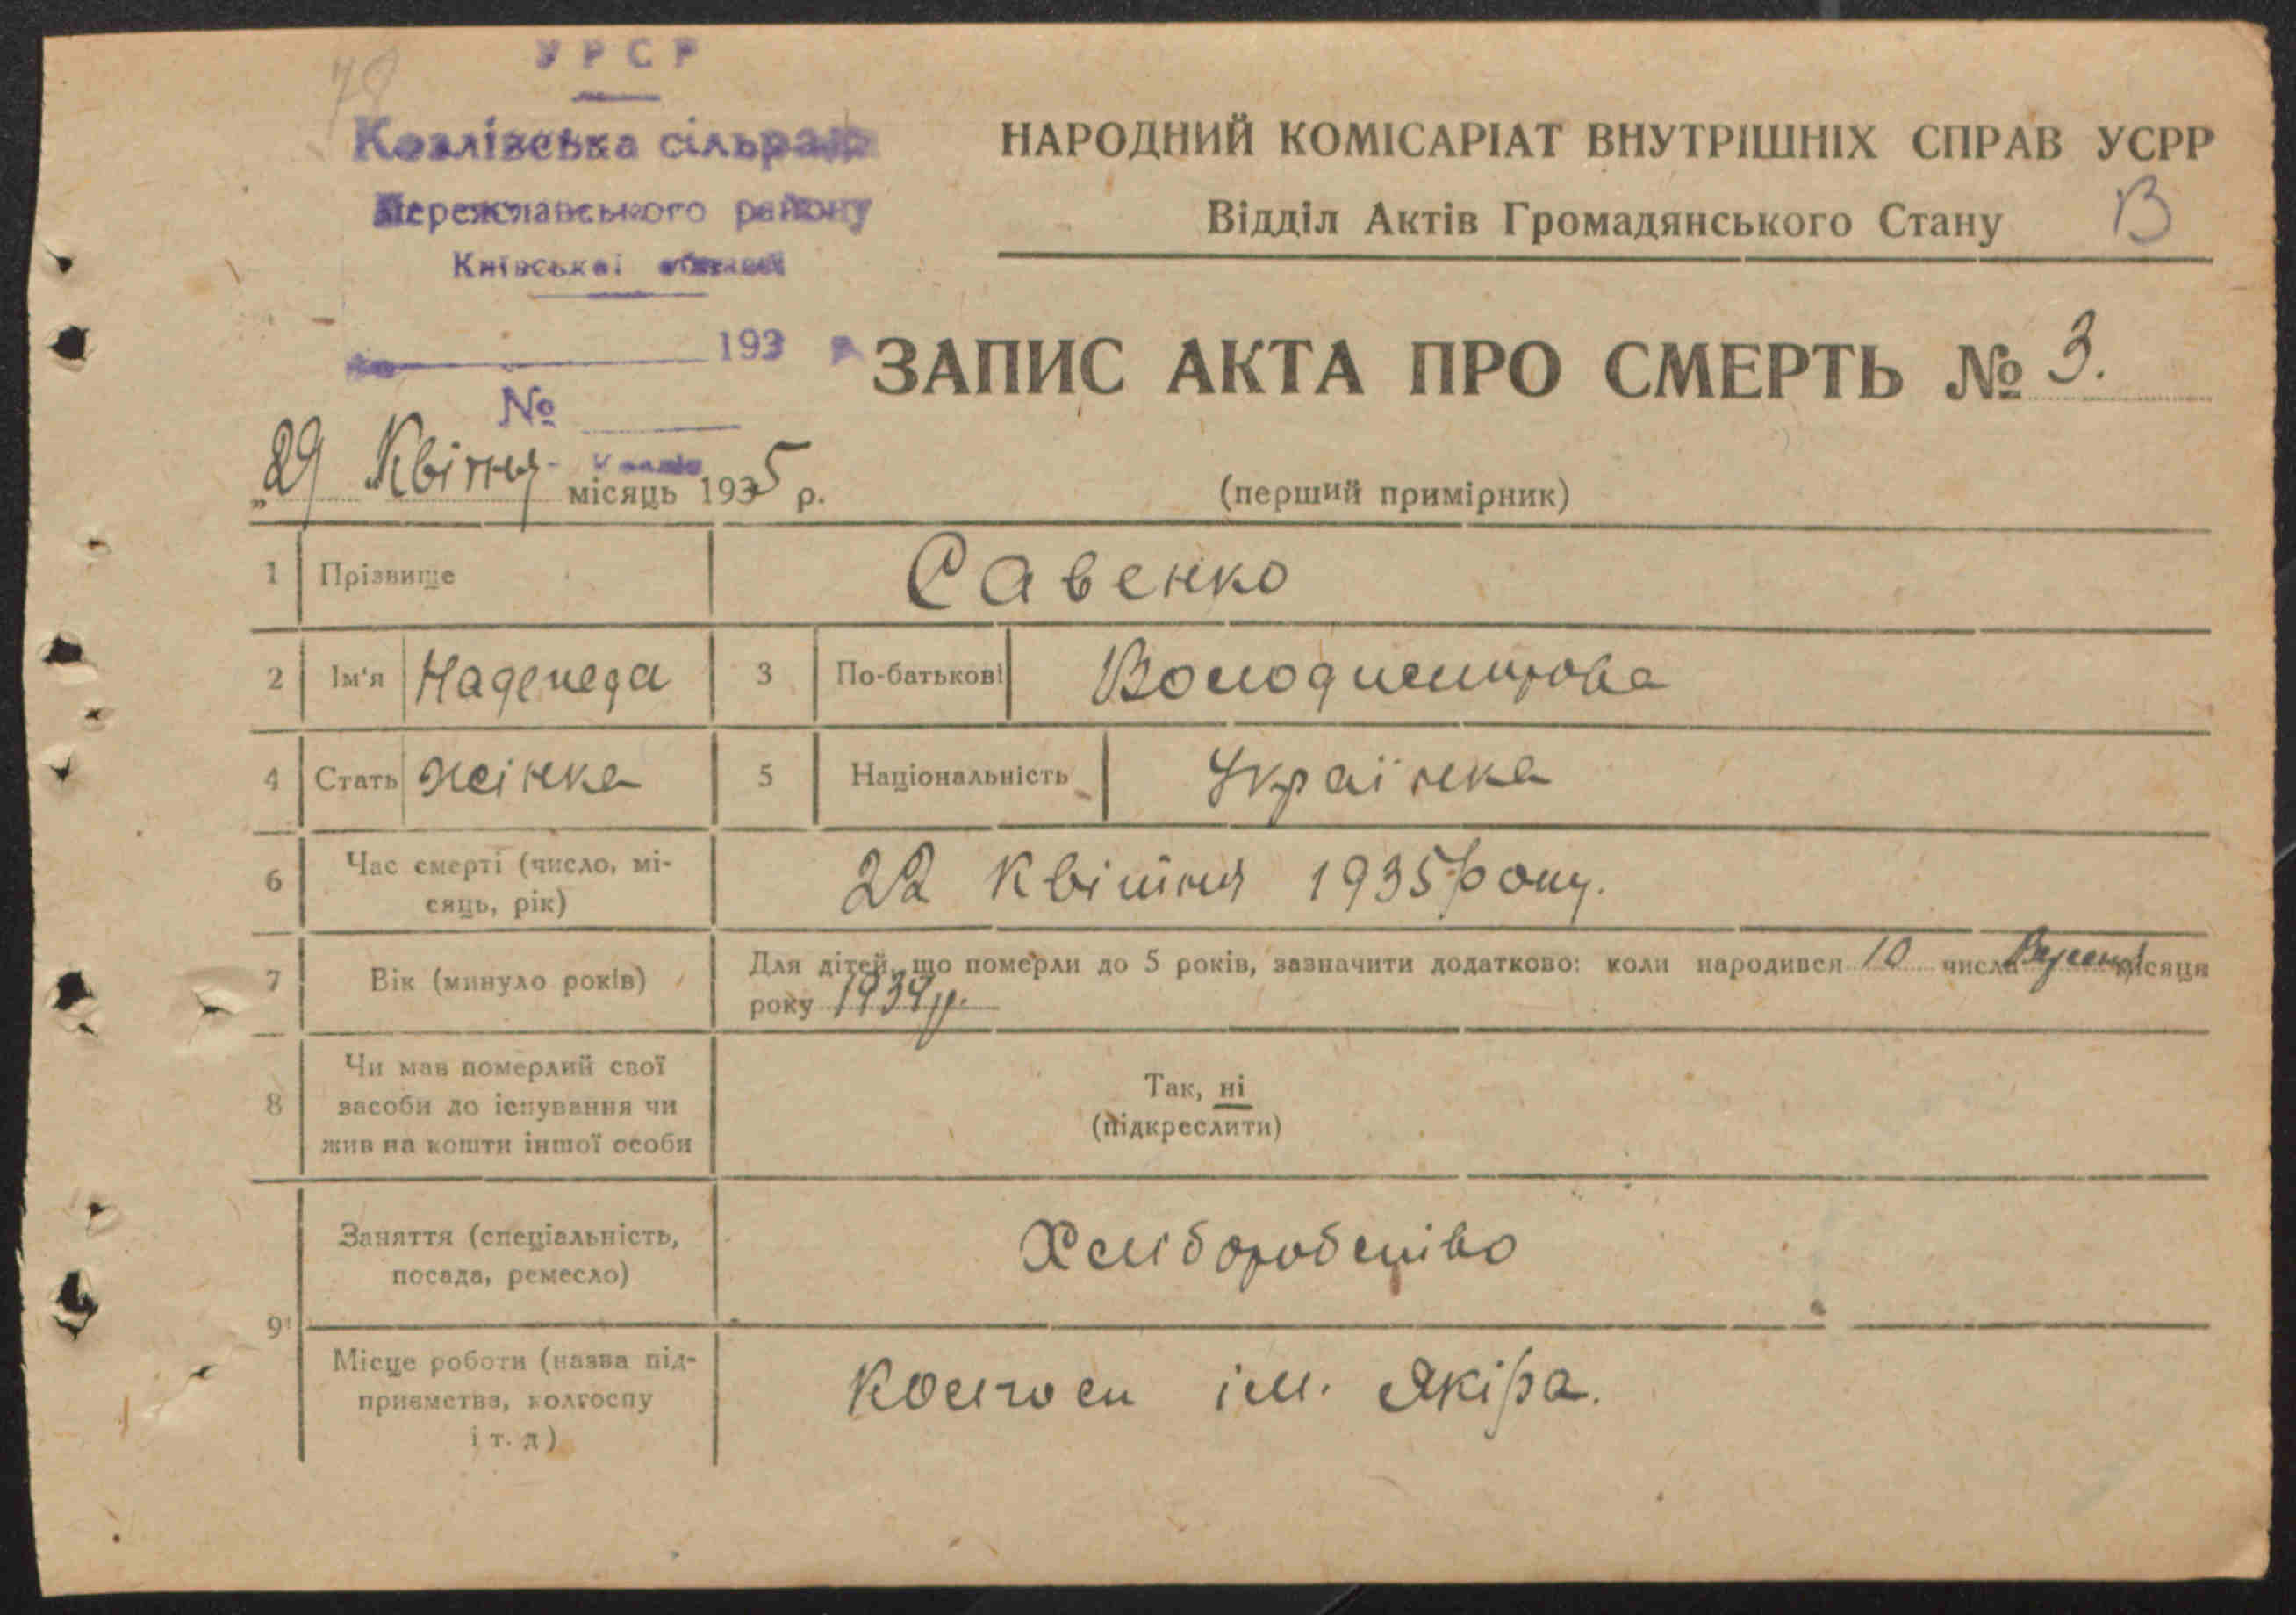 78
УРСР
Козлівська сільрада
Переяславського району
Київської області
193 р
№
НАРОДНИЙ КОМІСАРІАТ ВНУТРІШНІХ СПРАВ УСРР
Відділ Актів Громадянського Стану В
ЗАПИС АКТА ПРО СМЕРТЬ № 3.
„29 Квітня місяць 1935 р.
(перший примірник)
1 Прізвище Савенко
2 Ім'я Надежда 3 По-батькові Володимирова
4 Стать жінка 5 Національність Українка
6 Час смерті (число, мі-
сяць, рік)
22 Квітня 1935 року.
7 Вік (минуло років)
Для дітей, що померли до 5 років, зазначити додатково: коли народився 10 числа Вересня місяця
року 1934 р.
8 Чи мав померлий свої
засоби до існування чи
жив на кошти іншої особи
Так, ні
(підкреслити)
9 Заняття (спеціальність,
посада, ремесло)
Хліборобство
Місце роботи (назва під-
приємства, колгоспу
і т. д)
Колгосп ім. Якіра.